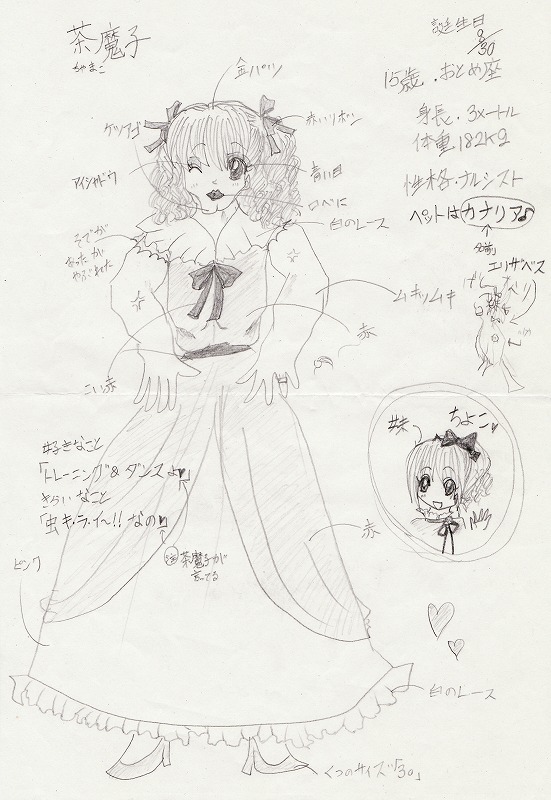 茶魔子
ちゃまこ
誕生日
9/30
15歳.おとめ座
身長.3メートル
体重182Kg
性格・ナルシスト
ペットはカナリア♪
名前
エリザベス
金パツ
ケツアゴ
赤いリボン
アイシャドウ
青い目
口べに
白のレース
そでが
あったが
やぶれた
ムキッムキ
赤
こい赤
妹
ちよこ♥
好きなこと
「トレーニング&ダンスよ♥」
きらいなこと
「虫キ・ラ・イ〜!!なの♥」
茶魔子が
言ってる
赤
ピンク
白のレース
くつのサイズ「30」